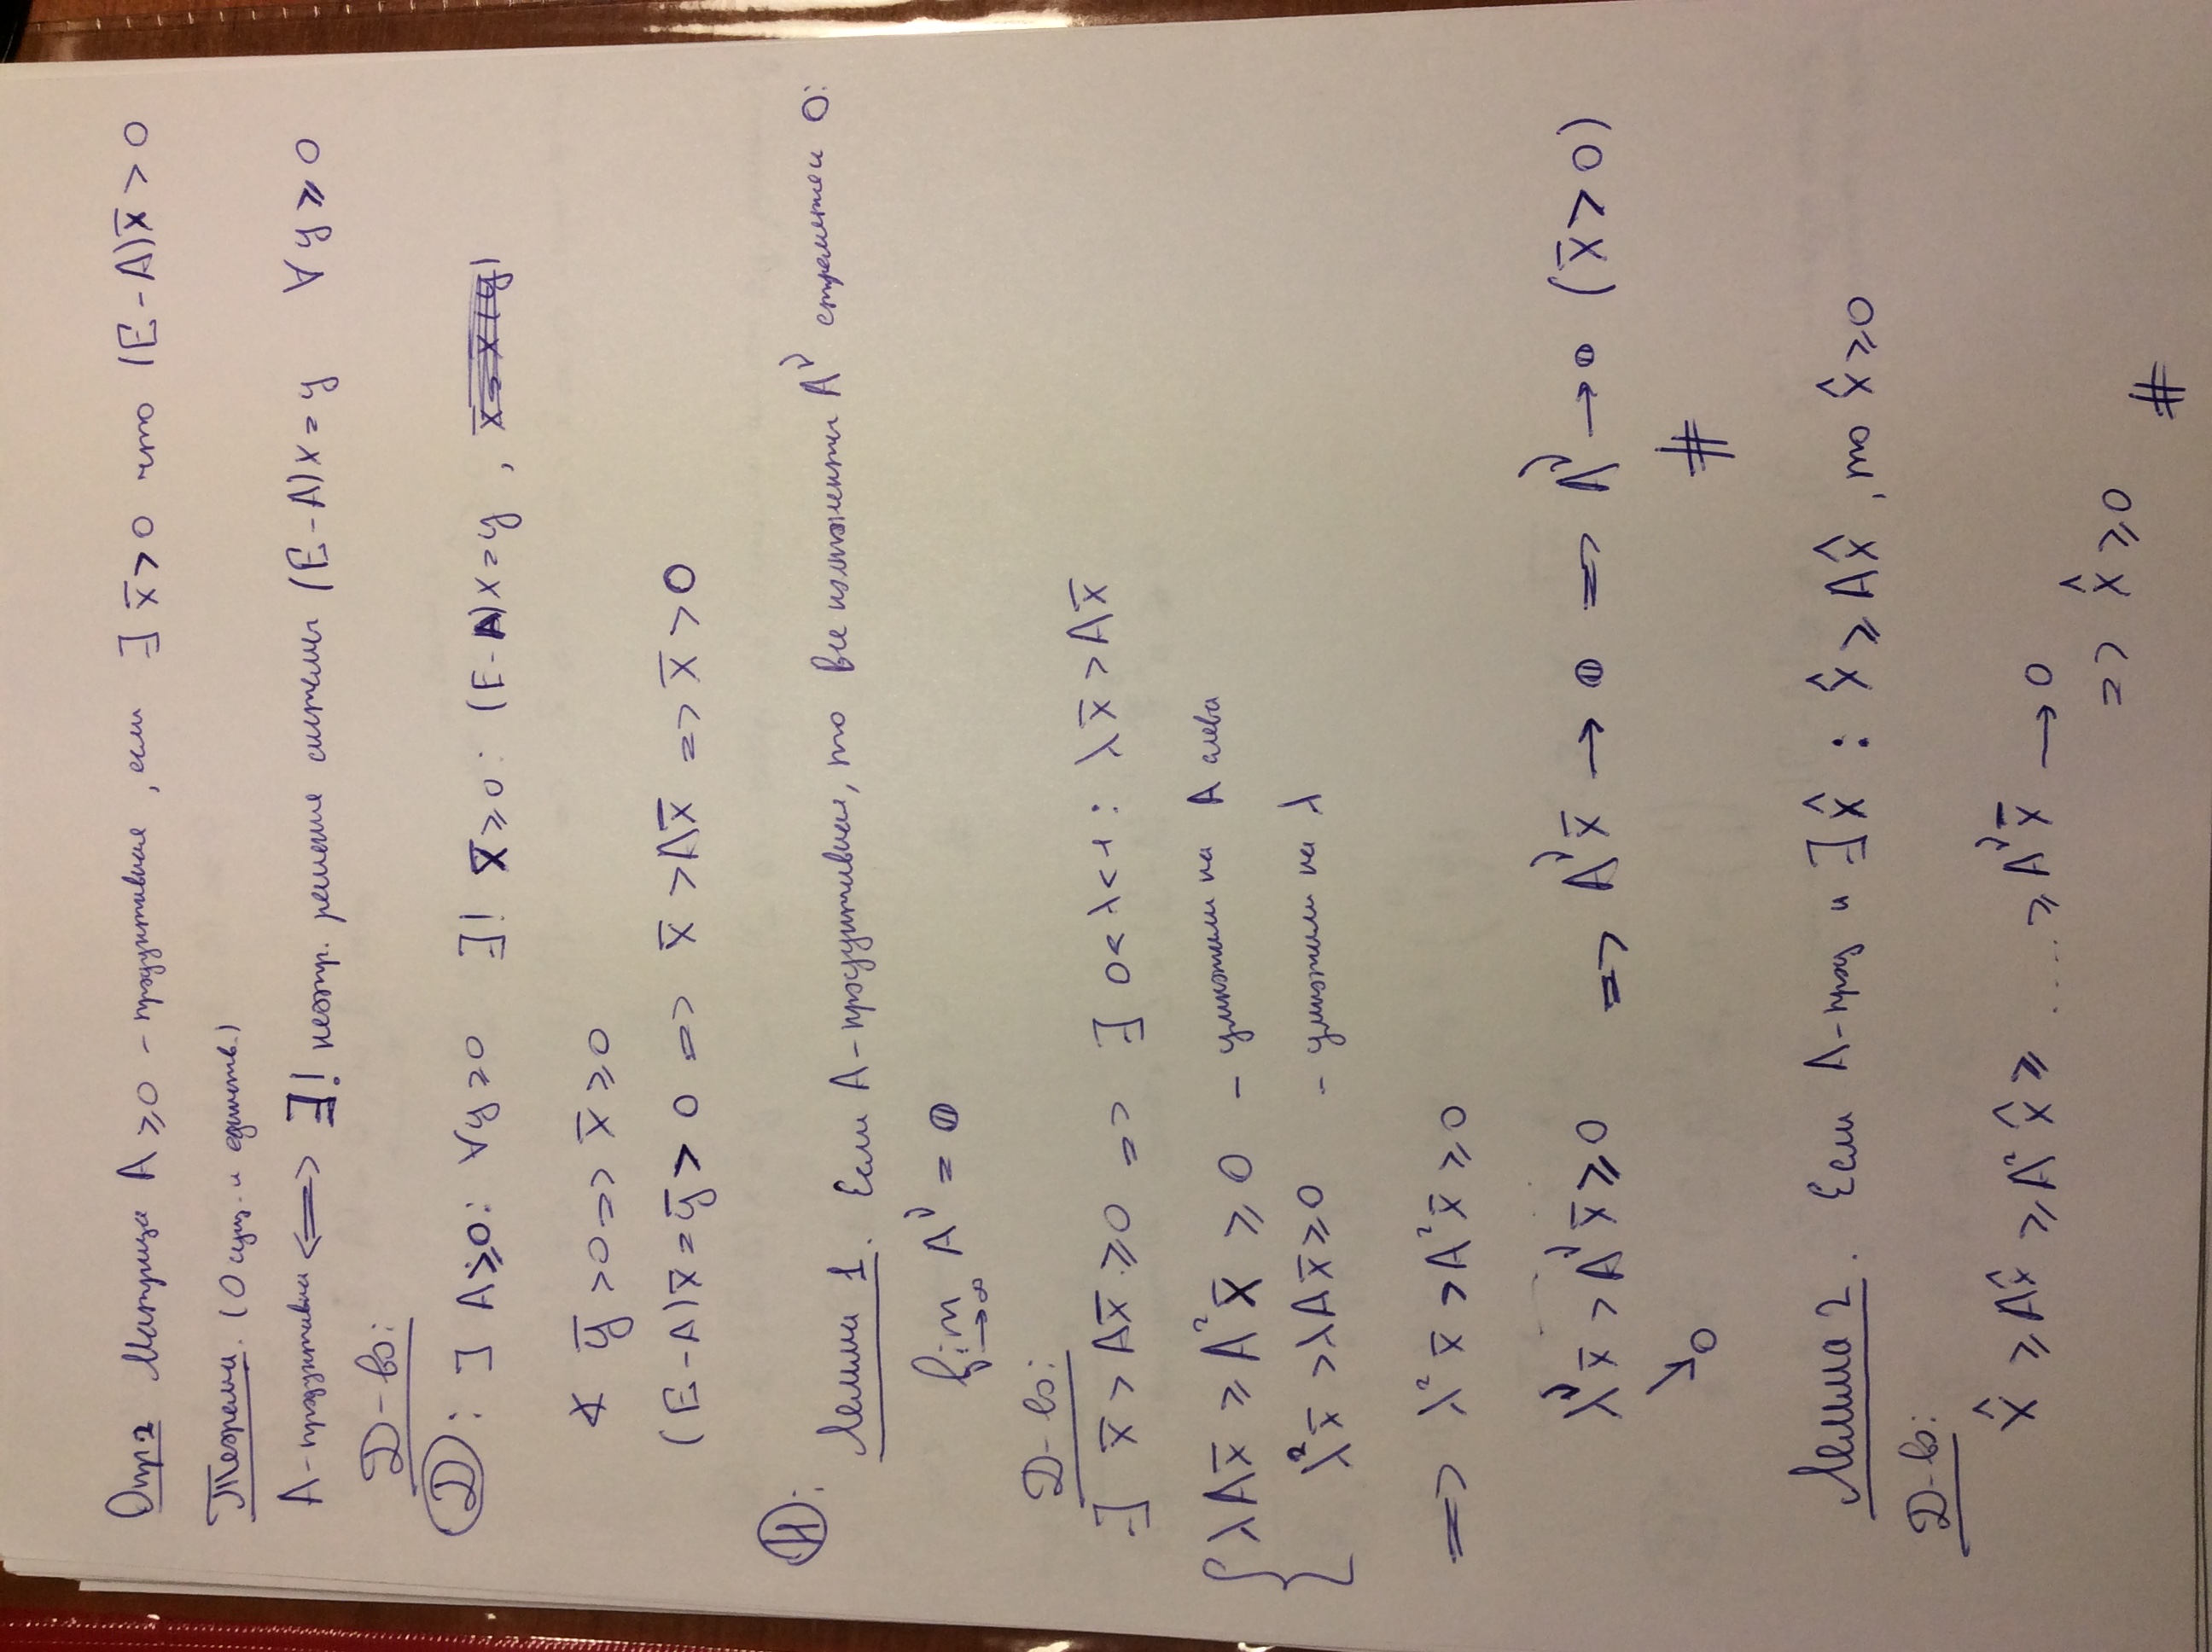 Опр2 Матрица A ⩾ 0 – продуктивная, если ∃ x̄ > 0 что (E – A)x̄ > 0
Теорема. (О сущ. и единств.)
A – продуктивна <=> ∃! неотр. решение системы (E – A)x = y ∀y ⩾ 0
Д-во:
Д: ∃ A ⩾ 0: ∀y ⩾ 0 ∃! x̄ ⩾ 0: (E – A)x = y ,
∢ ȳ > 0 => x̄ ⩾ 0
(E – A)x̄ = ȳ > 0 => x̄ > Ax̄ => x̄ > 0
Н:
Лемма 1. Если A – продуктивная, то все компоненты A^ν стремятся 0:
lim A^ν = 0
ν→∞
Д-во:
∃ x̄ > Ax̄ ⩾ 0 => ∃ 0 < λ < 1 : λx̄ > Ax̄
{ λAx̄ ⩾ A²x̄ ⩾ 0 – умножили на A слева
λ²x̄ > λAx̄ ⩾ 0 – умножили на λ
=> λ²x̄ > A²x̄ ⩾ 0
λ^ν x̄ > A^ν x̄ ⩾ 0 => A^ν x̄ → 0 => A^ν → 0 (x̄ > 0)
↘0 #
Лемма 2. Если A – прод и ∃ x̂ : x̂ ⩾ Ax̂ , то x̂ ⩾ 0
Д-во:
x̂ ⩾ Ax̂ ⩾ A²x̂ ⩾ .... ⩾ A^ν x̄ → 0
=> x̂ ⩾ 0
#